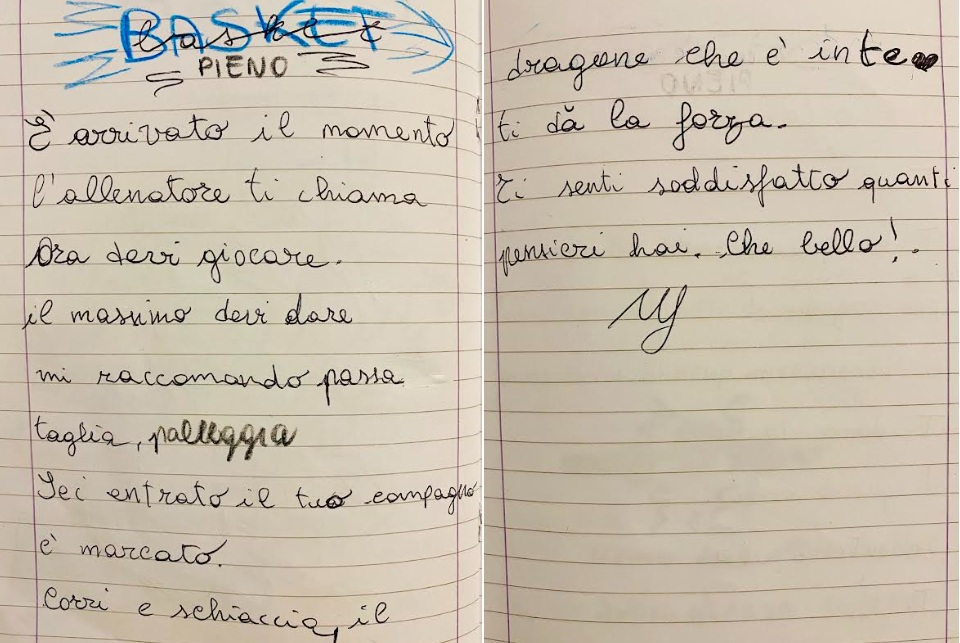 BASKET
basket
PIENO
È arrivato il momento
l'allenatore ti chiama
Ora devi giocare.
il massimo devi dare
mi raccomando passa
taglia, palleggia
Sei entrato il tuo compagno
è marcato.
Corri e schiaccia, il
dragone che è in te
ti dà la forza.
Ti senti soddisfatto quanti
pensieri hai. Che bello!.